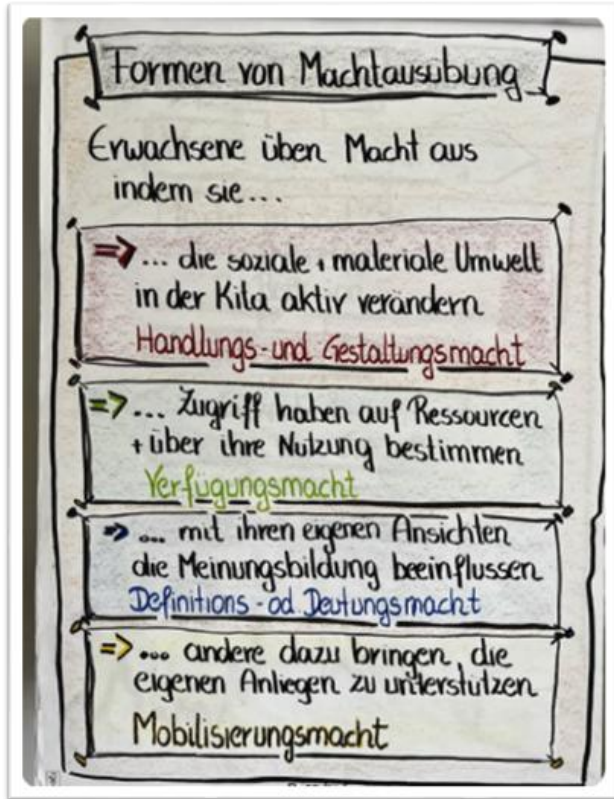 Formen von Machtausübung
Erwachsene üben Macht aus
indem sie...
=> ... die soziale + materiale Umwelt
in der Kita aktiv verändern
Handlungs- und Gestaltungsmacht
=> ... Zugriff haben auf Ressourcen
+ über ihre Nutzung bestimmen
Verfügungsmacht
=> ... mit ihren eigenen Ansichten
die Meinungsbildung beeinflussen
Definitions- od Deutungsmacht
=> ... andere dazu bringen, die
eigenen Anliegen zu unterstützen
Mobilisierungsmacht